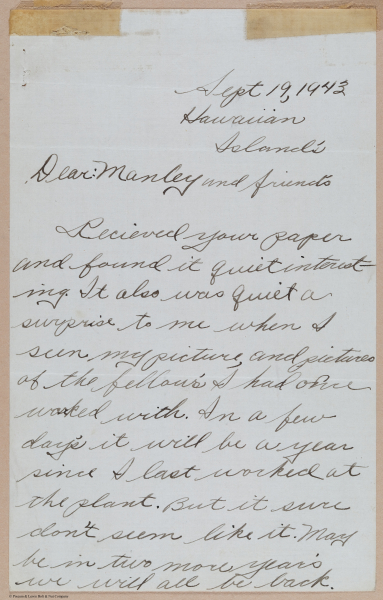 Sept 19, 1943
Hawaiian
Island's
Dear: Manley and friends
Recieved your paper
and found it quiet interest
ing. It also was quiet a
surprise to me when I
seen my picture and pictures
of the fellow's I had once
worked with. In a few
day's it will be a year
since I last worked at
the plant. But it sure
don't seem like it. May
be in two more year's
we will all be back.